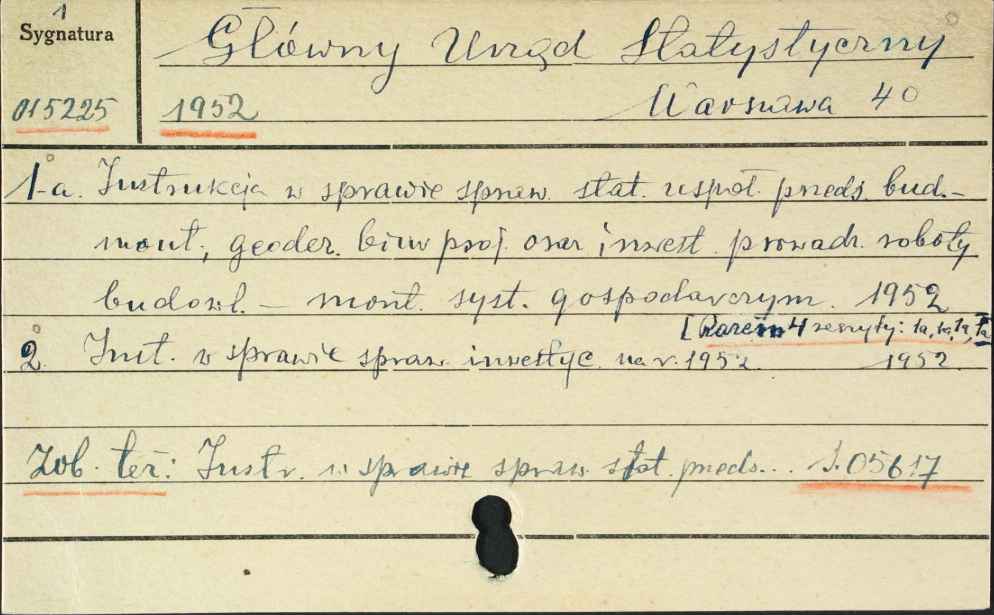 1
Sygnatura
Główny Urząd Statystyczny
015225
1952
Warszawa 40
1-a. Instrukcja w sprawie spraw. stat. uspoł. przeds. bud.-
mont., geodez. biur proj. oraz inwest. prowadz. roboty
budowl. - mont. syst. gospodarczym. 1952
[Razem 4 zeszyty: 1a, 1a, 1a, 1a
2. Inst. w sprawie spraw. inwestyc. na r. 1952 1952.
Zob. też: Instr. w sprawie spraw. stat. przeds... S.05617